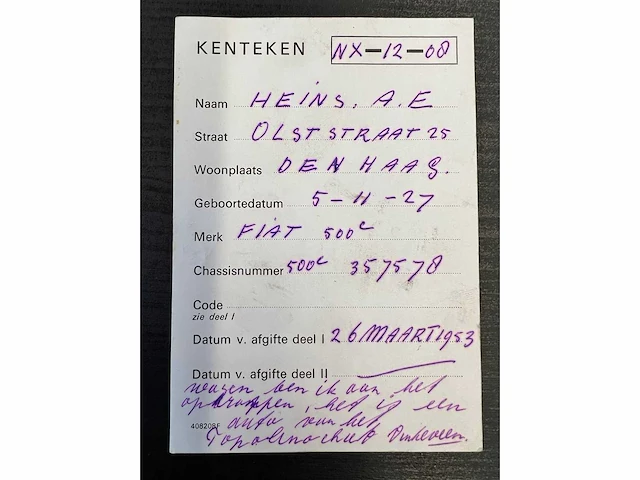 KENTEKEN NX-12-08
Naam HEINS. A.E
Straat OLSTSTRAAT 25
Woonplaats DEN HAAG.
Geboortedatum 5-11-27
Merk FIAT 500c
Chassisnummer 500c 357578
Code
zie deel I
Datum v. afgifte deel I 26 MAART 1953
Datum v. afgifte deel II
wagen ben ik aan het
opknappen, het is een
auto van het
408208F
Topolinoclub Vinkeveen.